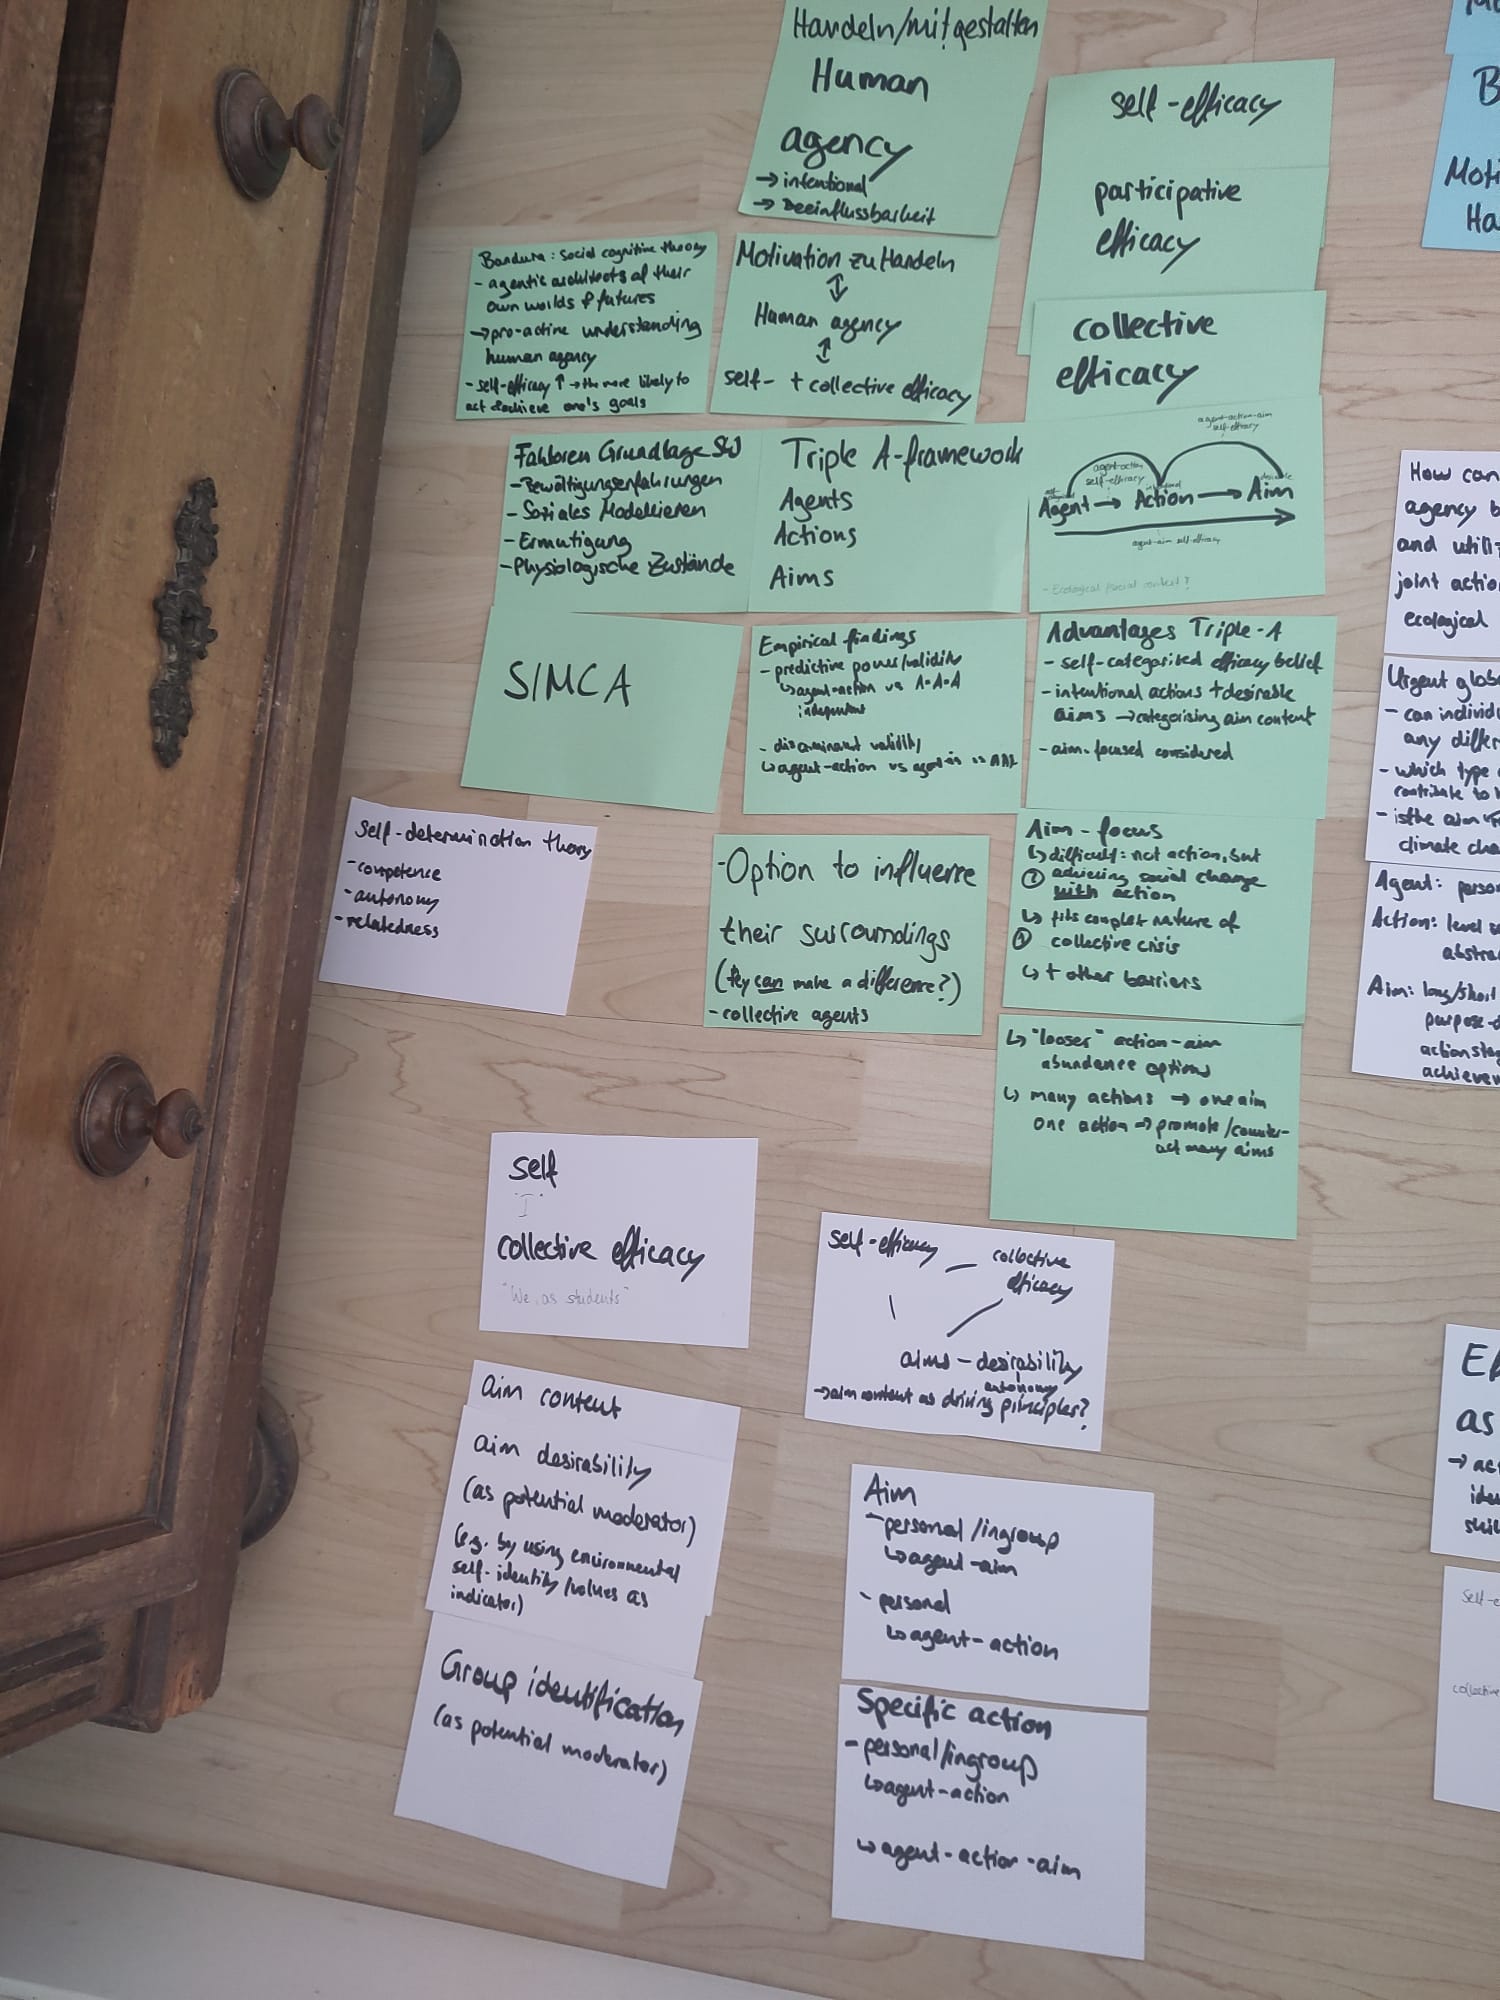 Handeln/mitgestalten
Human
agency
→ intentional
→ Beeinflussbarkeit
self-efficacy
participative
efficacy
collective
efficacy
Bandura: social cognitive theory
- agentic architects of their
own worlds & futures
→ pro-active understanding
human agency
- self-efficacy ↑ → the more likely to
act & achieve one's goals
Motivation zu Handeln
↕
Human agency
↕
self- + collective efficacy
Faktoren Grundlage SW
- Bewältigungserfahrungen
- Soziales Modellieren
- Ermutigung
- Physiologische Zustände
Triple A-framework
Agents
Actions
Aims
agent-action-aim
self-efficacy
agent-action
self-efficacy
desirable
Agent → Action → Aim
agent-aim self-efficacy
- Ecological/social context?
SIMCA
Empirical findings
- predictive power/validity
↳ agent-action vs A-A-A
independent
- discriminant validity
↳ agent-action vs
Advantages Triple-A
- self-categorised efficacy belief
- intentional actions + desirable
aims → categorising aim content
- aim-focused considered
Self-determination theory
- competence
- autonomy
- relatedness
- Option to influence
their surroundings
(they can make a difference?)
- collective agents
Aim-focus
↳ difficult: not action, but
② achieving social change
with action
↳ fits complex nature of
① collective crisis
↳ + other barriers
↳ "looser" action-aim
abundance options
↳ many actions → one aim
one action → promote/counter-
act many aims
self
"I"
collective efficacy
"We, as students"
self-efficacy
collective
efficacy
aims - desirability
autonomy
→ aim content as driving principles?
aim content
aim desirability
(as potential moderator)
(e.g. by using environmental
self-identity/values as
indicator)
Group identification
(as potential moderator)
Aim
- personal/ingroup
↳ agent-aim
- personal
↳ agent-action
Specific action
- personal/ingroup
↳ agent-action
↳ agent-action-aim
B
Moti
Ha
How can
agency b
and utiliz
joint actio
ecological
Urgent globa
- can individu
any differ
- which type
contribute to
- is the aim
climate cha
Agent: person
Action: level
abstra
Aim: long/short
purpose-
action sta
achievem
as
→ act
ide
skil
self-e
collective